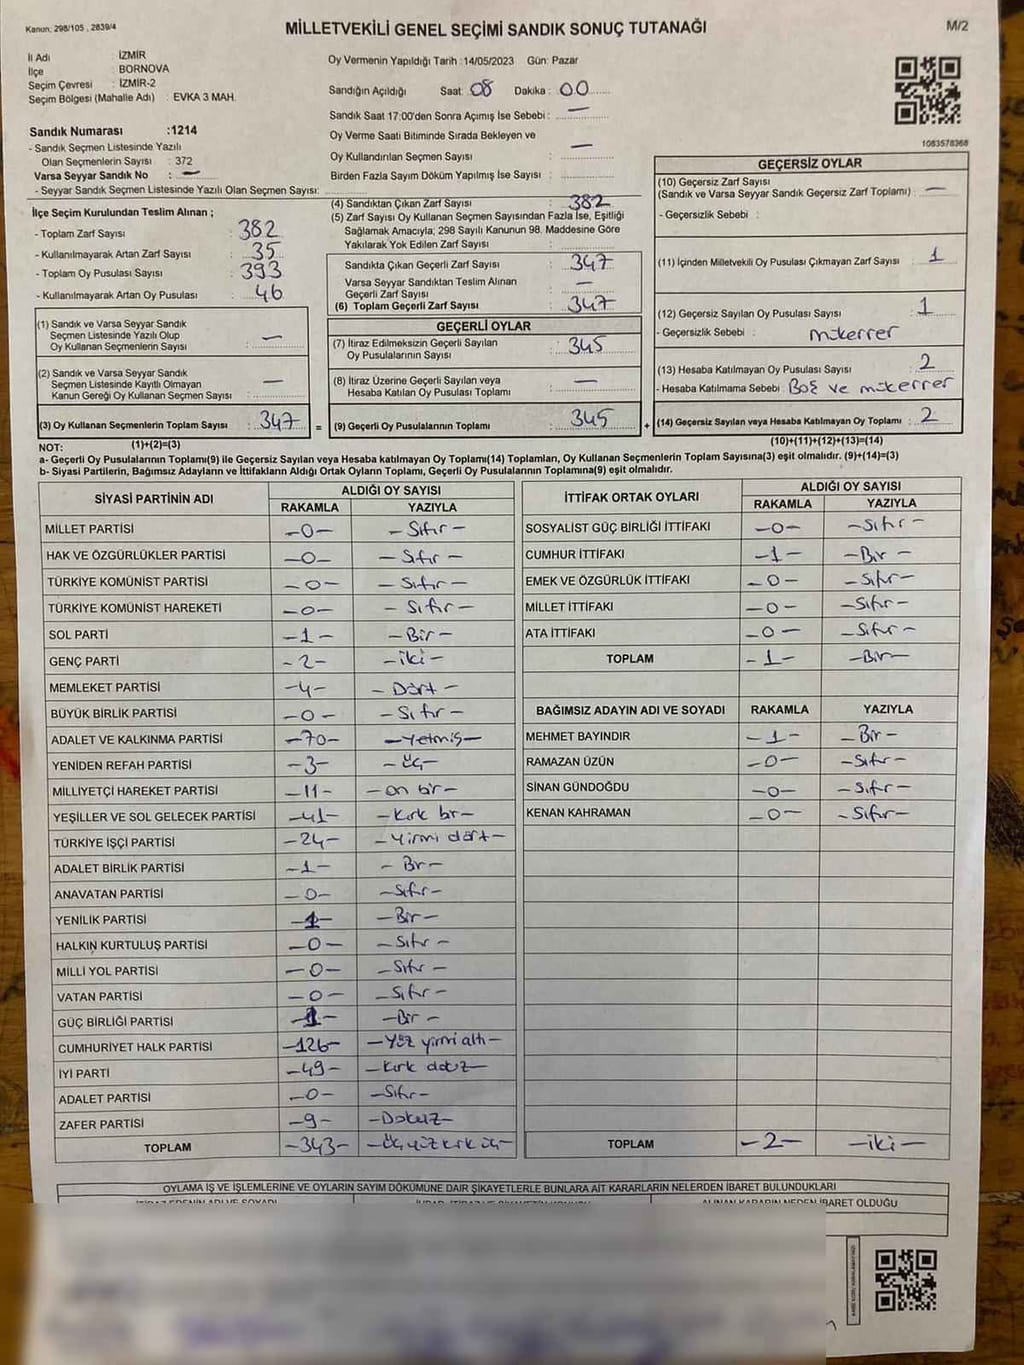 Kanun: 298/105 , 2839/4
MİLLETVEKİLİ GENEL SEÇİMİ SANDIK SONUÇ TUTANAĞI
M/2
İl Adı : İZMİR
İlçe : BORNOVA
Seçim Çevresi : İZMİR-2
Seçim Bölgesi (Mahalle Adı) : EVKA 3 MAH.
Oy Vermenin Yapıldığı Tarih :14/05/2023 Gün: Pazar
Sandığın Açıldığı Saat: 08 Dakika : 00
Sandık Saat 17:00'den Sonra Açımış İse Sebebi : —
Oy Verme Saati Bitiminde Sırada Bekleyen ve
Oy Kullandırılan Seçmen Sayısı : —
Birden Fazla Sayım Döküm Yapılmış İse Sayısı :
1083578368
Sandık Numarası :1214
- Sandık Seçmen Listesinde Yazılı
Olan Seçmenlerin Sayısı : 372
Varsa Seyyar Sandık No : —
- Seyyar Sandık Seçmen Listesinde Yazılı Olan Seçmen Sayısı:
İlçe Seçim Kurulundan Teslim Alınan ;
- Toplam Zarf Sayısı : 382
- Kullanılmayarak Artan Zarf Sayısı : 35
- Toplam Oy Pusulası Sayısı : 393
- Kullanılmayarak Artan Oy Pusulası : 46
(1) Sandık ve Varsa Seyyar Sandık
Seçmen Listesinde Yazılı Olup
Oy Kullanan Seçmenlerin Sayısı : —
(2) Sandık ve Varsa Seyyar Sandık
Seçmen Listesinde Kayıtlı Olmayan
Kanun Gereği Oy Kullanan Seçmen Sayısı : —
(3) Oy Kullanan Seçmenlerin Toplam Sayısı : 347 =
(4) Sandıktan Çıkan Zarf Sayısı : 382
(5) Zarf Sayısı Oy Kullanan Seçmen Sayısından Fazla İse, Eşitliği
Sağlamak Amacıyla; 298 Sayılı Kanunun 98. Maddesine Göre
Yakılarak Yok Edilen Zarf Sayısı :
Sandıkta Çıkan Geçerli Zarf Sayısı : 347
Varsa Seyyar Sandıktan Teslim Alınan
Geçerli Zarf Sayısı : —
(6) Toplam Geçerli Zarf Sayısı : 347
GEÇERLİ OYLAR
(7) İtiraz Edilmeksizin Geçerli Sayılan
Oy Pusulalarının Sayısı : 345
(8) İtiraz Üzerine Geçerli Sayılan veya
Hesaba Katılan Oy Pusulası Toplamı : —
(9) Geçerli Oy Pusulalarının Toplamı : 345 +
GEÇERSİZ OYLAR
(10) Geçersiz Zarf Sayısı
(Sandık ve Varsa Seyyar Sandık Geçersiz Zarf Toplamı) : —
- Geçersizlik Sebebi :
(11) İçinden Milletvekili Oy Pusulası Çıkmayan Zarf Sayısı : 1
(12) Geçersiz Sayılan Oy Pusulası Sayısı : 1
- Geçersizlik Sebebi : mükerrer
(13) Hesaba Katılmayan Oy Pusulası Sayısı : 2
- Hesaba Katılmama Sebebi : Boş ve mükerrer
(14) Geçersiz Sayılan veya Hesaba Katılmayan Oy Toplamı : 2
NOT: (1)+(2)=(3) (10)+(11)+(12)+(13)=(14)
a- Geçerli Oy Pusulalarının Toplamı(9) ile Geçersiz Sayılan veya Hesaba Katılmayan Oy Toplamı(14) Toplamları, Oy Kullanan Seçmenlerin Toplam Sayısına(3) eşit olmalıdır. (9)+(14)=(3)
b- Siyasi Partilerin, Bağımsız Adayların ve İttifakların Aldığı Ortak Oyların Toplamı, Geçerli Oy Pusulalarının Toplamına(9) eşit olmalıdır.
SİYASİ PARTİNİN ADI ALDIĞI OY SAYISI
RAKAMLA YAZIYLA
MİLLET PARTİSİ -0- -Sıfır-
HAK VE ÖZGÜRLÜKLER PARTİSİ -0- -Sıfır-
TÜRKİYE KOMÜNİST PARTİSİ -0- -Sıfır-
TÜRKİYE KOMÜNİST HAREKETİ -0- -Sıfır-
SOL PARTİ -1- -Bir-
GENÇ PARTİ -2- -iki-
MEMLEKET PARTİSİ -4- -Dört-
BÜYÜK BİRLİK PARTİSİ -0- -Sıfır-
ADALET VE KALKINMA PARTİSİ -70- -Yetmiş-
YENİDEN REFAH PARTİSİ -3- -Üç-
MİLLİYETÇİ HAREKET PARTİSİ -11- -on bir-
YEŞİLLER VE SOL GELECEK PARTİSİ -41- -Kırk bir-
TÜRKİYE İŞÇİ PARTİSİ -24- -Yirmi dört-
ADALET BİRLİK PARTİSİ -1- -Bir-
ANAVATAN PARTİSİ -0- -Sıfır-
YENİLİK PARTİSİ -1- -Bir-
HALKIN KURTULUŞ PARTİSİ -0- -Sıfır-
MİLLİ YOL PARTİSİ -0- -Sıfır-
VATAN PARTİSİ -0- -Sıfır-
GÜÇ BİRLİĞİ PARTİSİ -1- -Bir-
CUMHURİYET HALK PARTİSİ -126- -Yüz yirmi altı-
İYİ PARTİ -49- -Kırk dokuz-
ADALET PARTİSİ -0- -Sıfır-
ZAFER PARTİSİ -9- -Dokuz-
TOPLAM -343- -Üç yüz kırk üç-
İTTİFAK ORTAK OYLARI ALDIĞI OY SAYISI
RAKAMLA YAZIYLA
SOSYALIST GÜÇ BİRLİĞİ İTTİFAKI -0- -Sıfır-
CUMHUR İTTİFAKI -1- -Bir-
EMEK VE ÖZGÜRLÜK İTTİFAKI -0- -Sıfır-
MİLLET İTTİFAKI -0- -Sıfır-
ATA İTTİFAKI -0- -Sıfır-
TOPLAM -1- -Bir-
BAĞIMSIZ ADAYIN ADI VE SOYADI RAKAMLA YAZIYLA
MEHMET BAYINDIR -1- -Bir-
RAMAZAN ÜZÜN -0- -Sıfır-
SİNAN GÜNDOĞDU -0- -Sıfır-
KENAN KAHRAMAN -0- -Sıfır-
TOPLAM -2- -iki-
OYLAMA İŞ VE İŞLEMLERİNE VE OYLARIN SAYIM DÖKÜMÜNE DAİR ŞİKAYETLERLE BUNLARA AİT KARARLARIN NELERDEN İBARET BULUNDUKLARI
ALINAN KARARIN NEDEN İBARET OLDUĞU